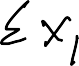 Σx₁